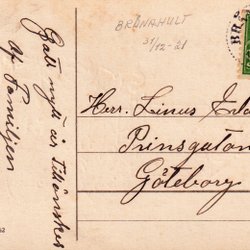 BRÛNAHULT
31/12-21
Gott nytt år tillönskes
af Familjen
Herr. Linus
Prinsgatan
Göteborg